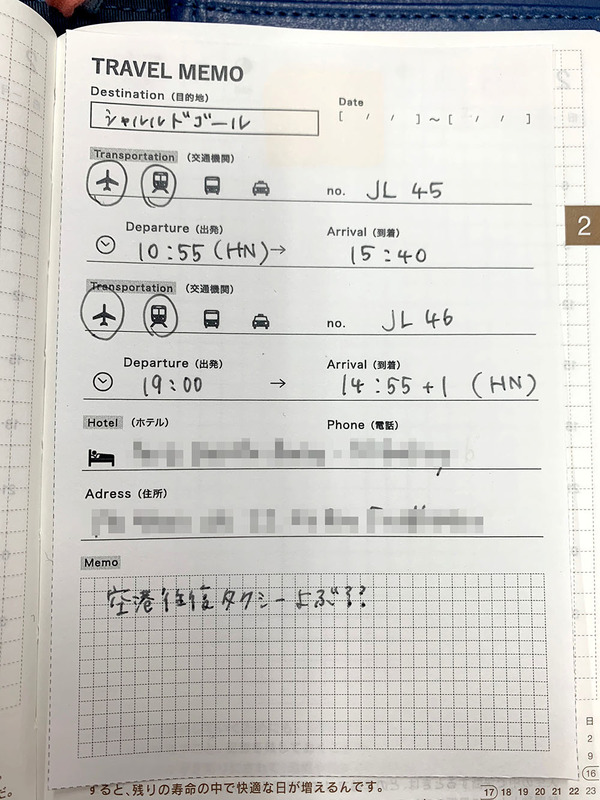 TRAVEL MEMO
Destination (目的地)
シャルルドゴール
Date
[ / / ]~[ / / ]
Transportation (交通機関)
no. JL 45
Departure (出発)
Arrival (到着)
10:55 (HN)→
15:40
Transportation (交通機関)
no. JL 46
Departure (出発)
Arrival (到着)
19:00 →
14:55+1 (HN)
Hotel (ホテル)
Phone (電話)
Adress (住所)
Memo
空港往復タクシーよぶ??
2
すると、残りの寿命の中で快適な日が増えるんです。
日
2
9
16
17 18 19 20 21 22 23